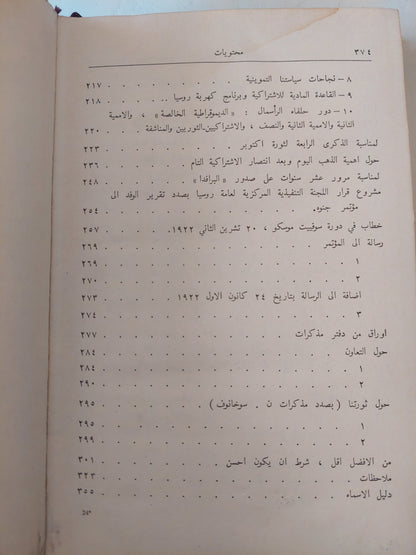 ٣٧٤ محتويات
٨ – نجاحات سياستنا التموينية . . . . . . . ٢١٧
٩ – القاعدة المادية للاشتراكية وبرنامج كهربة روسيا . . . ٢١٨
١٠ – دور حلفاء الرأسمال : «الديموقراطية الخالصة» ، والاممية
الثانية والاممية الثانية والنصف ، والاشتراكيين-الثوريين والمناشفة . ٢٢٠
لمناسبة الذكرى الرابعة لثورة اكتوبر . . . . . . ٢٢٥
حول اهمية الذهب اليوم وبعد انتصار الاشتراكية التام . . . ٢٣٦
لمناسبة مرور عشر سنوات على صدور «البرافدا» . . . . ٢٤٨
مشروع قرار اللجنة التنفيذية المركزية لعامة روسيا بصدد تقرير الوفد الى
مؤتمر جنوه . . . . . . . . . . ٢٥٤
خطاب في دورة سوفييت موسكو ، ٢٠ تشرين الثاني ١٩٢٢ . . ٢٥٧
رسالة الى المؤتمر . . . . . . . . . ٢٦٩
١ . . . . . . . . . . . ٢٦٩
٢ . . . . . . . . . . . ٢٧٠
اضافة الى الرسالة بتاريخ ٢٤ كانون الاول ١٩٢٢ . . . . ٢٧٣
٣ . . . . . . . . . . . ٢٧٤
اوراق من دفتر مذكرات . . . . . . . . ٢٧٧
حول التعاون . . . . . . . . . . ٢٨٤
١ . . . . . . . . . . . ٢٨٤
٢ . . . . . . . . . . . ٢٩٠
حول ثورتنا (بصدد مذكرات ن . سوخانوف) . . . . . ٢٩٥
١ . . . . . . . . . . . ٢٩٥
٢ . . . . . . . . . . . ٢٩٩
من الافضل اقل ، شرط ان يكون احسن . . . . . . ٣٠١
ملاحظات . . . . . . . . . . . ٣٢٣
دليل الاسماء . . . . . . . . . . ٣٥٥
24*